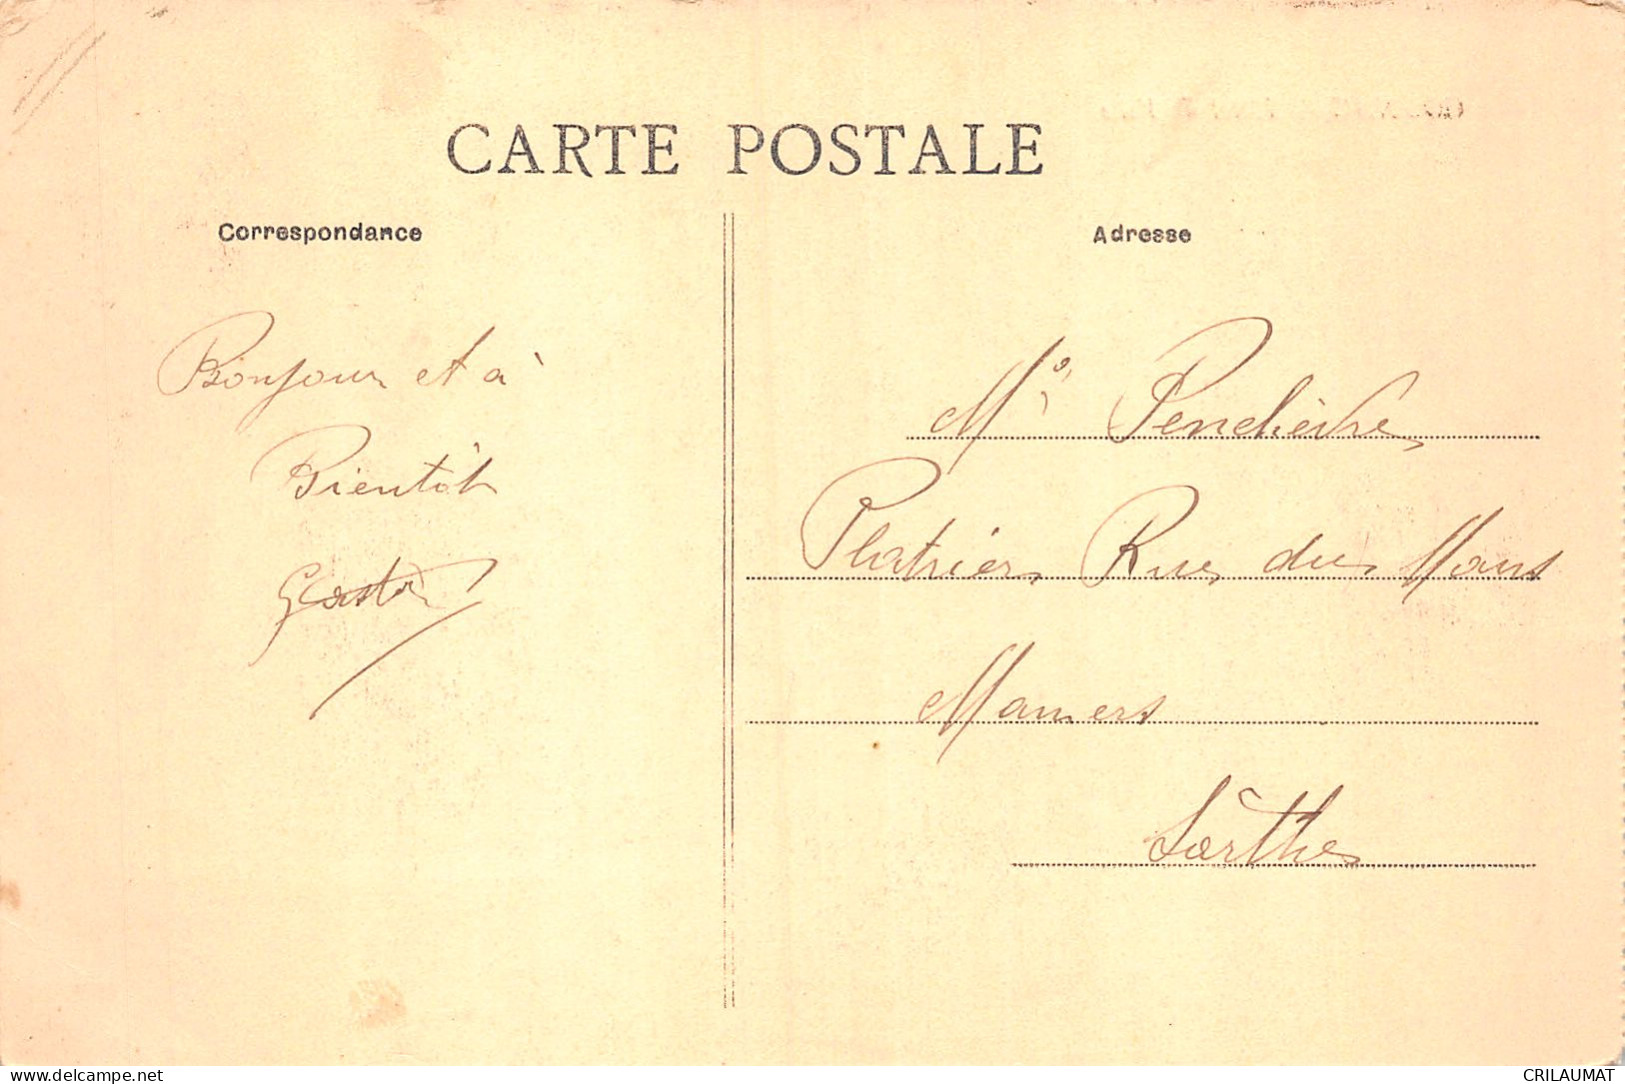 CARTE POSTALE
Correspondance
Adresse
Bonjour et à
Bientôt
Gaston
Mr Penchèvre
Platrier Rue du Mans
Mamers
Sarthe
delcampe.net
CRILAUMAT